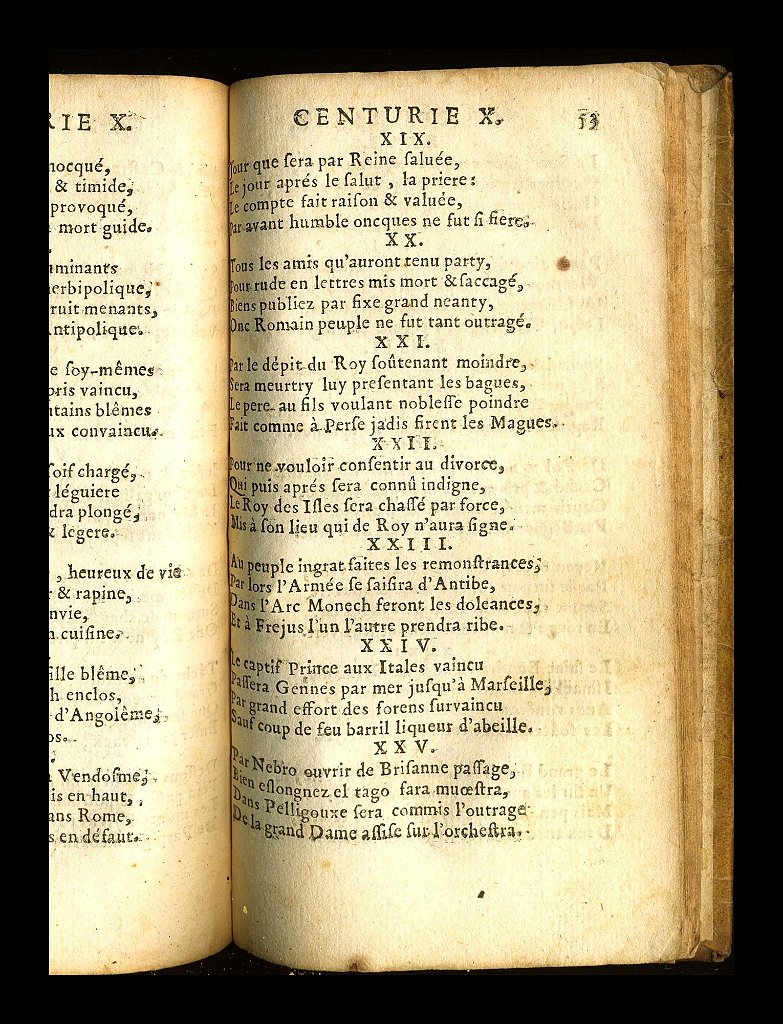 RIE X.
mocqué,
& timide,
provoqué,
mort guide.
uminants
herbipolique,
ruit menants,
Antipolique.
e soy-mêmes
pris vaincu,
ntains blêmes
ux convaincu.
soif chargé,
léguiere
dra plongé,
& légere.
, heureux de vie
& rapine,
nvie,
cuisine.
ille blême,
h enclos,
d'Angolême,
os.
Vendosme,
is en haut,
ans Rome,
s en défaut.
CENTURIE X. 53
XIX.
Jour que sera par Reine saluée,
Le jour aprés le salut, la priere:
Le compte fait raison & valuée,
Par avant humble oncques ne fut si fiere.
XX.
Tous les amis qu'auront tenu party,
Pour rude en lettres mis mort & saccagé,
Biens publiez par fixe grand neanty,
Onc Romain peuple ne fut tant outragé.
XXI.
Par le dépit du Roy soûtenant moindre,
Sera meurtry luy presentant les bagues,
Le pere au fils voulant noblesse poindre
Fait comme à Perse jadis firent les Magues.
XXII.
Pour ne vouloir consentir au divorce,
Qui puis aprés sera connû indigne,
Le Roy des Isles sera chassé par force,
Mis à son lieu qui de Roy n'aura signe.
XXIII.
Au peuple ingrat faites les remonstrances,
Par lors l'Armée se saisira d'Antibe,
Dans l'Arc Monech feront les doleances,
Et à Frejus l'un l'autre prendra ribe.
XXIV.
Le captif Prince aux Itales vaincu
Passera Gennes par mer jusqu'à Marseille,
Par grand effort des forens survaincu
Sauf coup de feu barril liqueur d'abeille.
XXV.
Par Nebro ouvrir de Brisanne passage,
Bien eslongnez el tago fara muœstra,
Dans Pelligouxe sera commis l'outrage
De la grand Dame assise sur l'orchestra.